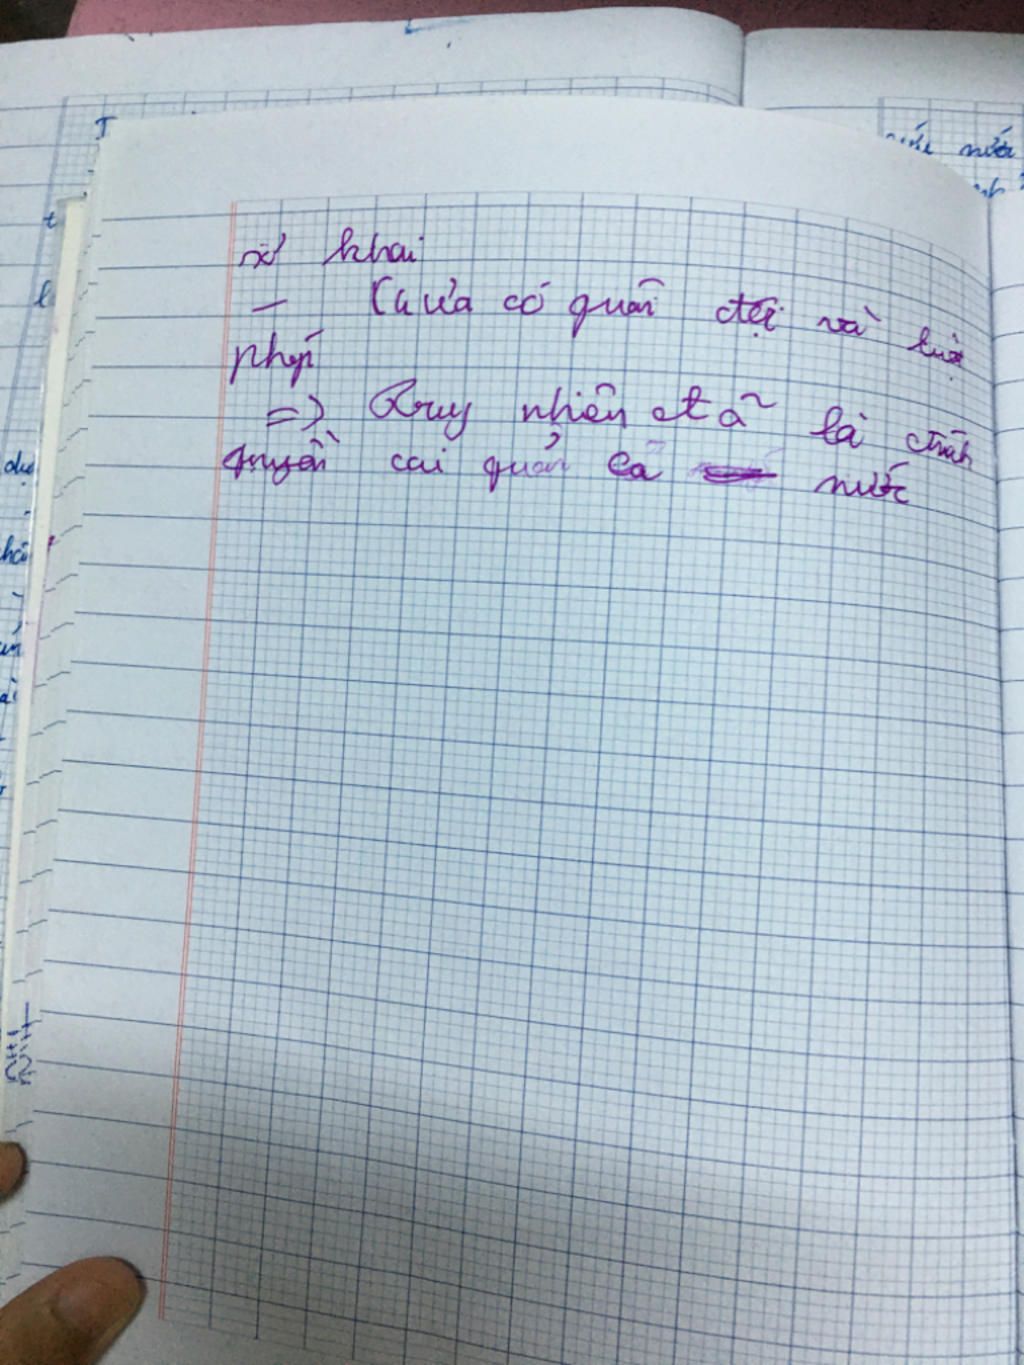 sơ khai
- Chưa có quân đội và luật
pháp
=> Tuy nhiên đã là chính
quyền cai quản cả nước